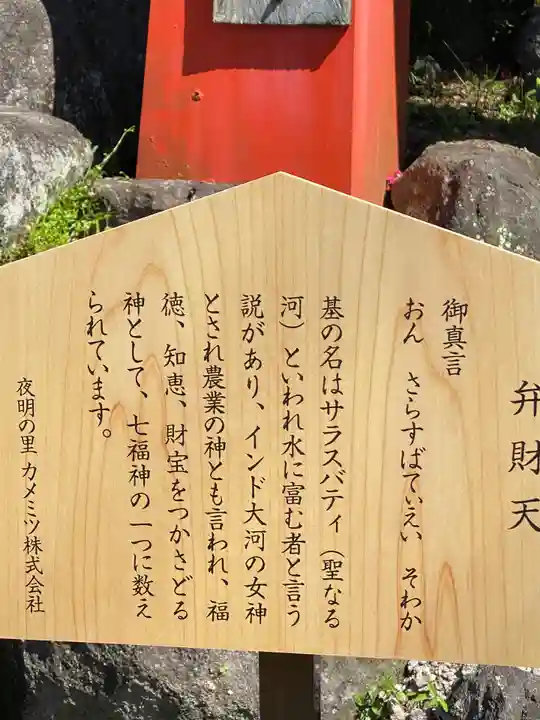 弁財天
御真言
おん さらすばていえい そわか
基の名はサラスバティ（聖なる
河）といわれ水に富む者と言う
説があり、インド大河の女神
とされ農業の神とも言われ、福
徳、知恵、財宝をつかさどる
神として、七福神の一つに数え
られています。
夜明の里 カメミツ株式会社